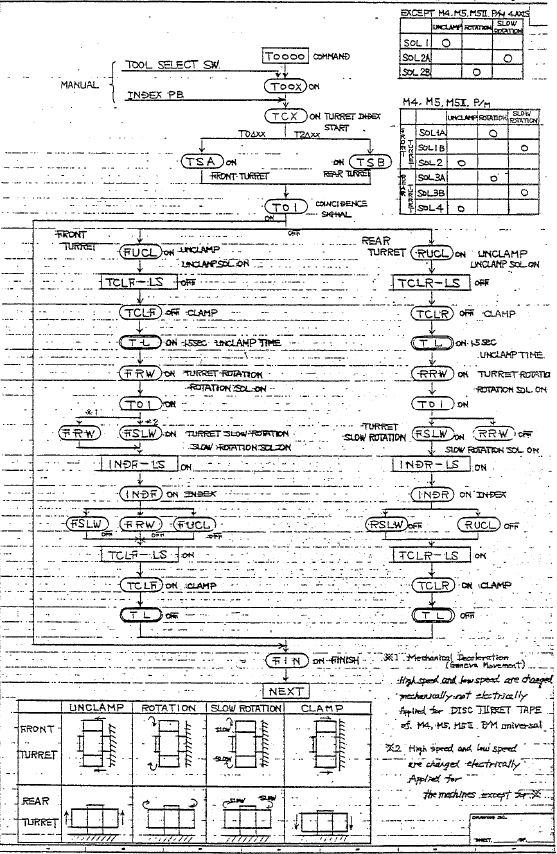 EXCEPT M4, M5, M5II, P/M 4 AXIS
UNCLAMP ROTATION SLOW ROTATION
SOL 1 O
SOL 2A O
SOL 2B O
T0000 COMMAND
TOOL SELECT SW.
MANUAL
T00X ON
INDEX PB
TCX ON TURRET INDEX START
M4, M5, M5II, P/M
UNCLAMP ROTATION SLOW ROTATION
FRONT TURRET
SOL1A O
SOL1B O
SOL 2 O
REAR TURRET
SOL3A O
SOL3B O
SOL 4 O
TSA ON
FRONT TURRET
ON TSB
REAR TURRET
TOI COINCIDENCE SIGNAL
ON
OFF
FRONT TURRET
FUCL ON UNCLAMP
UNCLAMP SOL ON
REAR TURRET
RUCL ON UNCLAMP
UNCLAMP SOL ON
TCLF-LS OFF
TCLR-LS OFF
TCLF OFF CLAMP
TCLR OFF CLAMP
TL ON 1.5SEC UNCLAMP TIME
TL ON 1.5SEC
UNCLAMP TIME
FRW ON TURRET ROTATION
ROTATION SOL ON
RRW ON TURRET ROTATIO
ROTATION SOL ON
TOI ON
TOI ON
※1 ※2
FRW FSLW ON TURRET SLOW ROTATION
SLOW ROTATION SOL ON
TURRET SLOW ROTATION
FSLW ON RRW OFF
SLOW ROTATION SOL ON
INDF-LS ON
INDR-LS ON
INDF ON INDEX
INDR ON INDEX
FSLW FRW FUCL
OFF OFF OFF
RSLW OFF RUCL OFF
TCLF-LS ON
TCLR-LS ON
TCLF ON CLAMP
TCLR ON CLAMP
TL OFF
TL OFF
FIN ON FINISH
NEXT
※1 Mechanical Deceleration
(Geneva Movement)
High speed and low speed are changed
mechanically not electrically
Applied for DISC TURRET TAPE
of M4, M5, M5II P/M universal
※2 High speed and low speed
are changed electrically
Applied for
the machines except for ※
UNCLAMP ROTATION SLOW ROTATION CLAMP
FRONT TURRET
SLOW
SLOW
REAR TURRET
SLOW SLOW
DRAWING NO.
SHEET OF